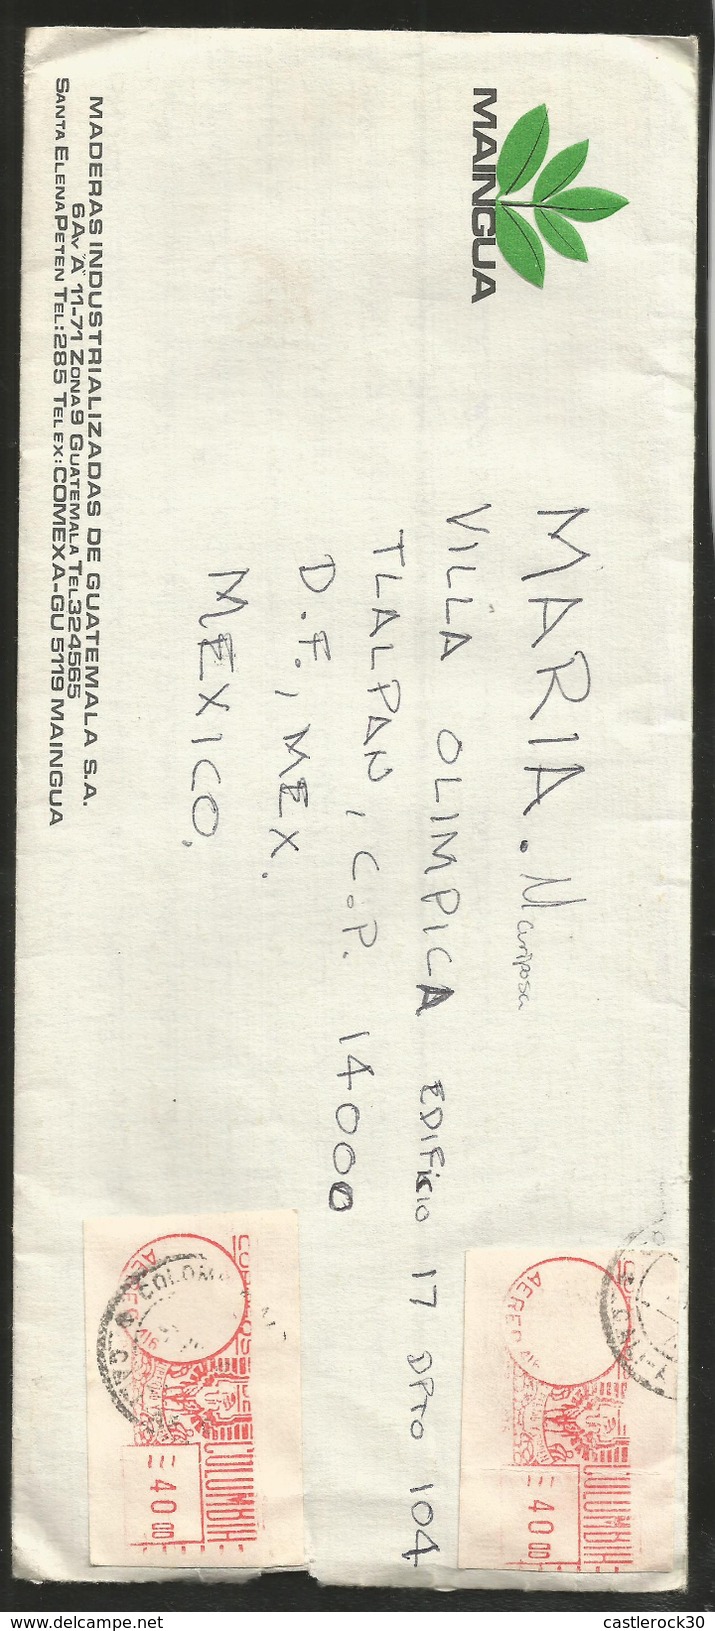 MAINGUA
MADERAS INDUSTRIALIZADAS DE GUATEMALA S.A.
6 Av "A" 11-71 ZONA 9 GUATEMALA TEL 324565
SANTA ELENA PETEN TEL: 285 TELEX: COMEXA-GU 5119 MAINGUA
MARIA. Mariposa
VILLA OLIMPICA EDIFICIO 17 DPTO 104
TLALPAN, C.P. 14000
D.F., MEX.
MEXICO.
CORREOS DE COLOMBIA
AEREO 416
40 00
CORREOS DE COLOMBIA
AEREO 416
40 00
COLOMBIA
CALI
castlerock30